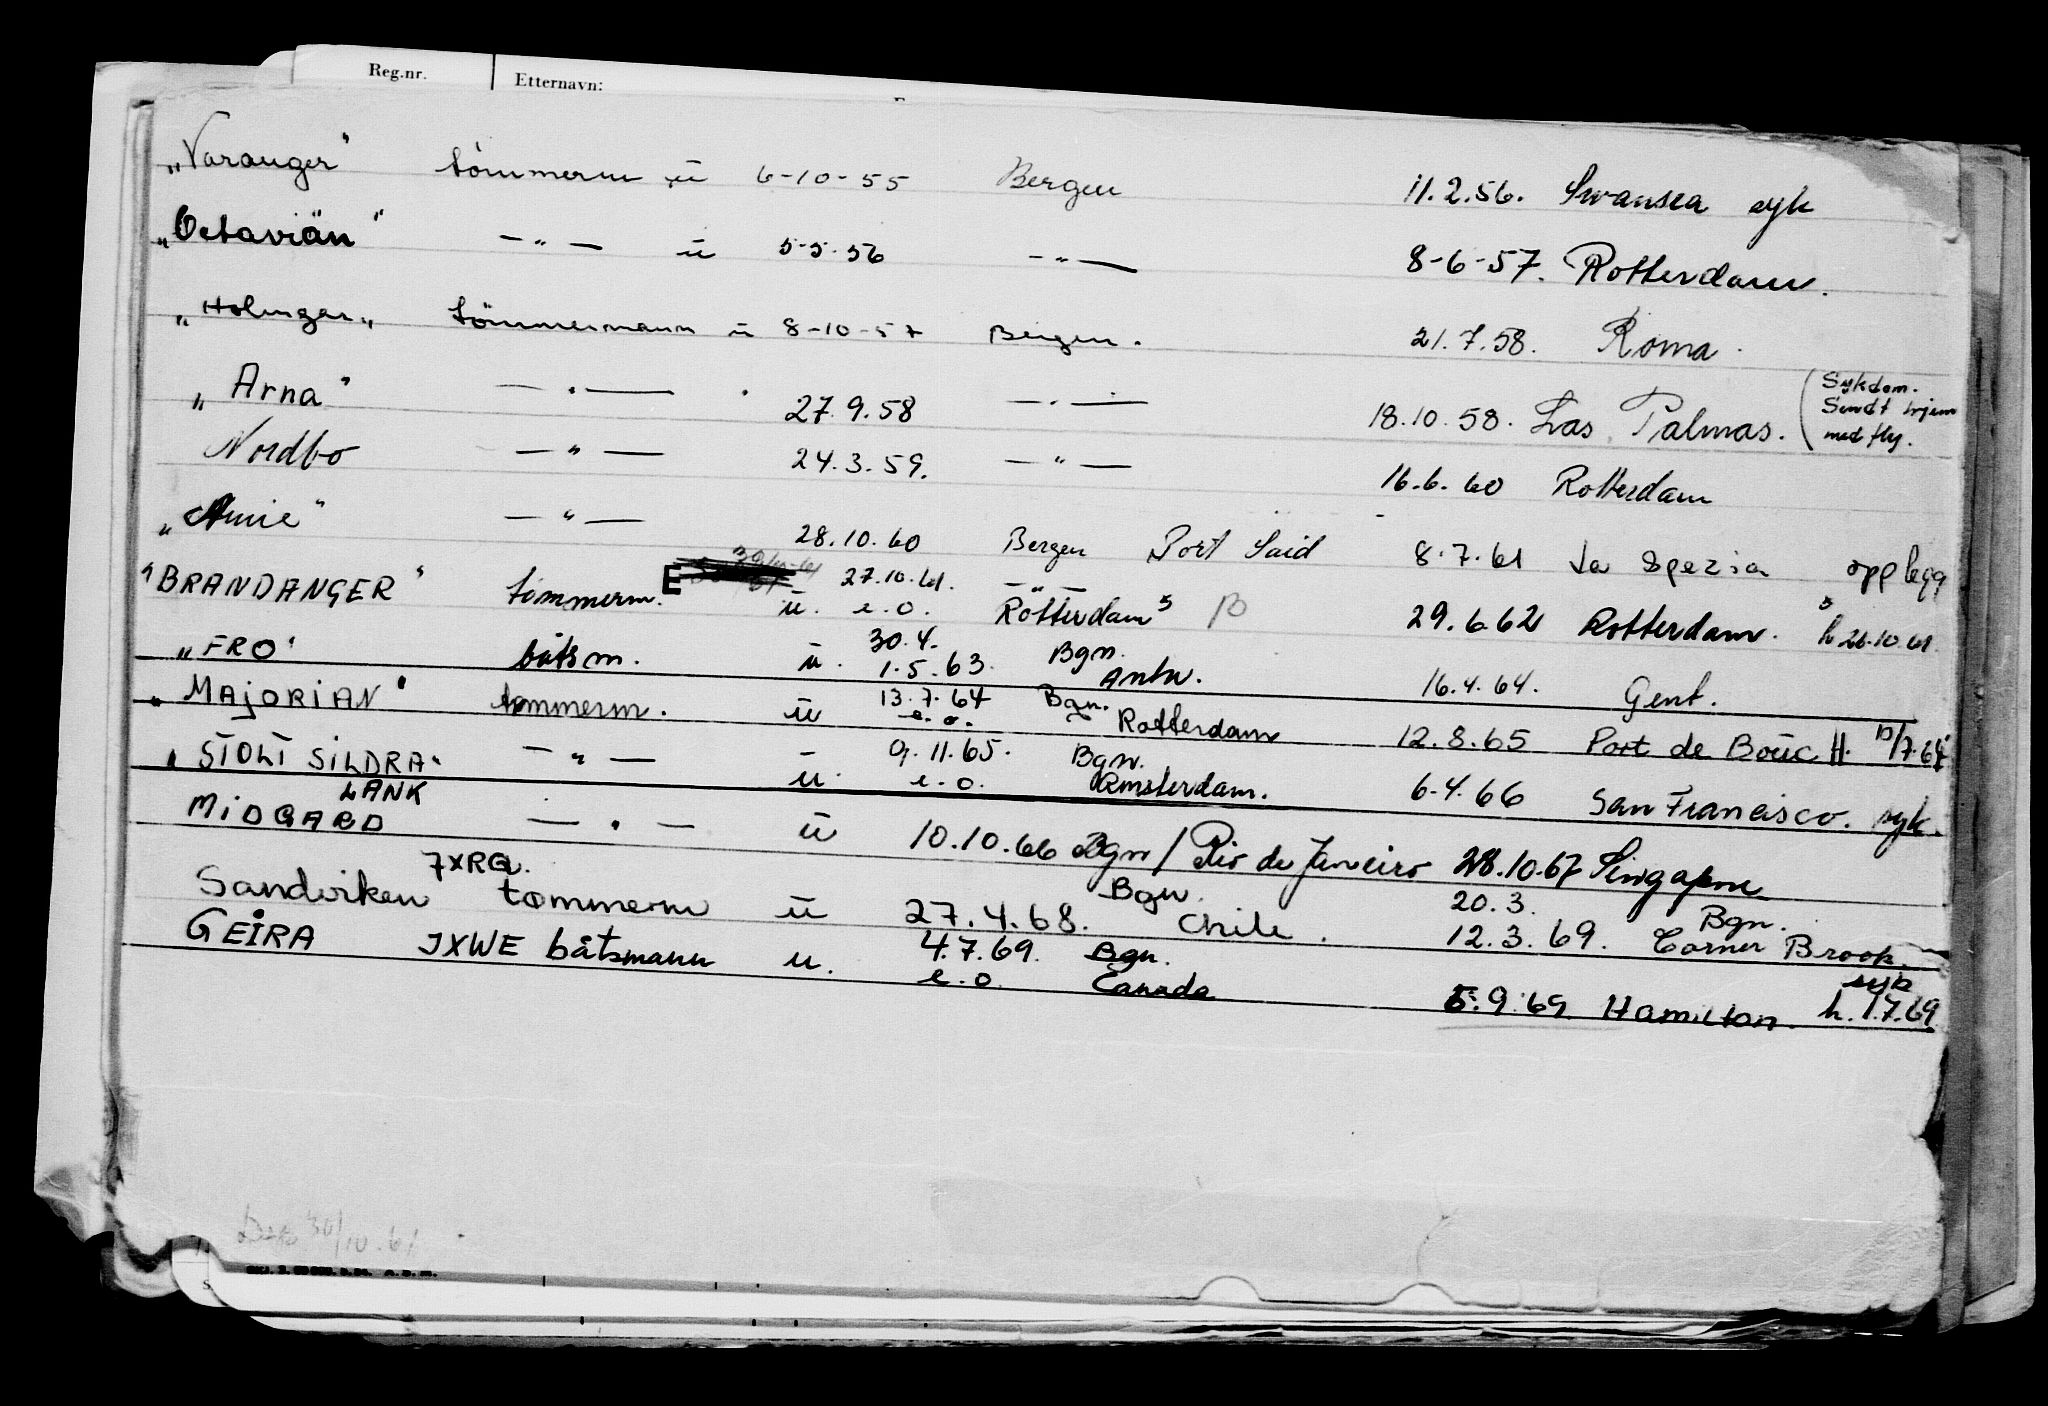 Reg.nr. Etternavn:
„Varanger" tömmerm ü 6-10-55 Bergen 11.2.56. Swansea syk
„Octaviän" — „ — ü 5-5-56 — „ — 8-6-57. Rotterdam.
„Holmgar„ tömmermann ü 8-10-57 Bergen. 21.7.58. Roma.
„Arna" — „ — 27.9.58 — „ — 18.10.58. Las Palmas. (Sykdom.
Sendt hjem
med fly.
Nordbo — „ — 24.3.59. — „ — 16.6.60 Rotterdam
— „ — 28.10.60 Bergen Port Said 8.7.61 La Spezia opplegg
"BRANDANGER" tömmerm. E 27.10.61. — „ —
ü. e.o. Rotterdam 29.6.62 Rotterdam. h 26.10.61.
„FRO" båtsm. ü. 30.4. Bgn.
1.5.63. Antw. 16.4.64. Gent.
„MAJORIAN" tømmerm. ü 13.7.64 Bgn.
e.o. Rotterdam 12.8.65 Port de Bouc H. 13/7.64
„STOLT SILDRA" — „ — ü 9.11.65. Bgn.
e.o. Amsterdam. 6.4.66 San Francisco. syk.
LANK
MIDGARD — „ — ü 10.10.66 Bgn / Rio de Janeiro 28.10.67 Singapore
7XRQ. Bgn. 20.3. Bgn.
Sandviken tømmerm ü 27.4.68. Chile. 12.3.69. Corner Brook.
GEIRA JXWE båtsmann u. 4.7.69. Bgn. syk
e.o. Canada 5.9.69 Hamilton. h. 1.7.69
30/10.61